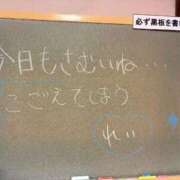 必ず黒板を書
今日もさむいね...
こごえてしまう
れい